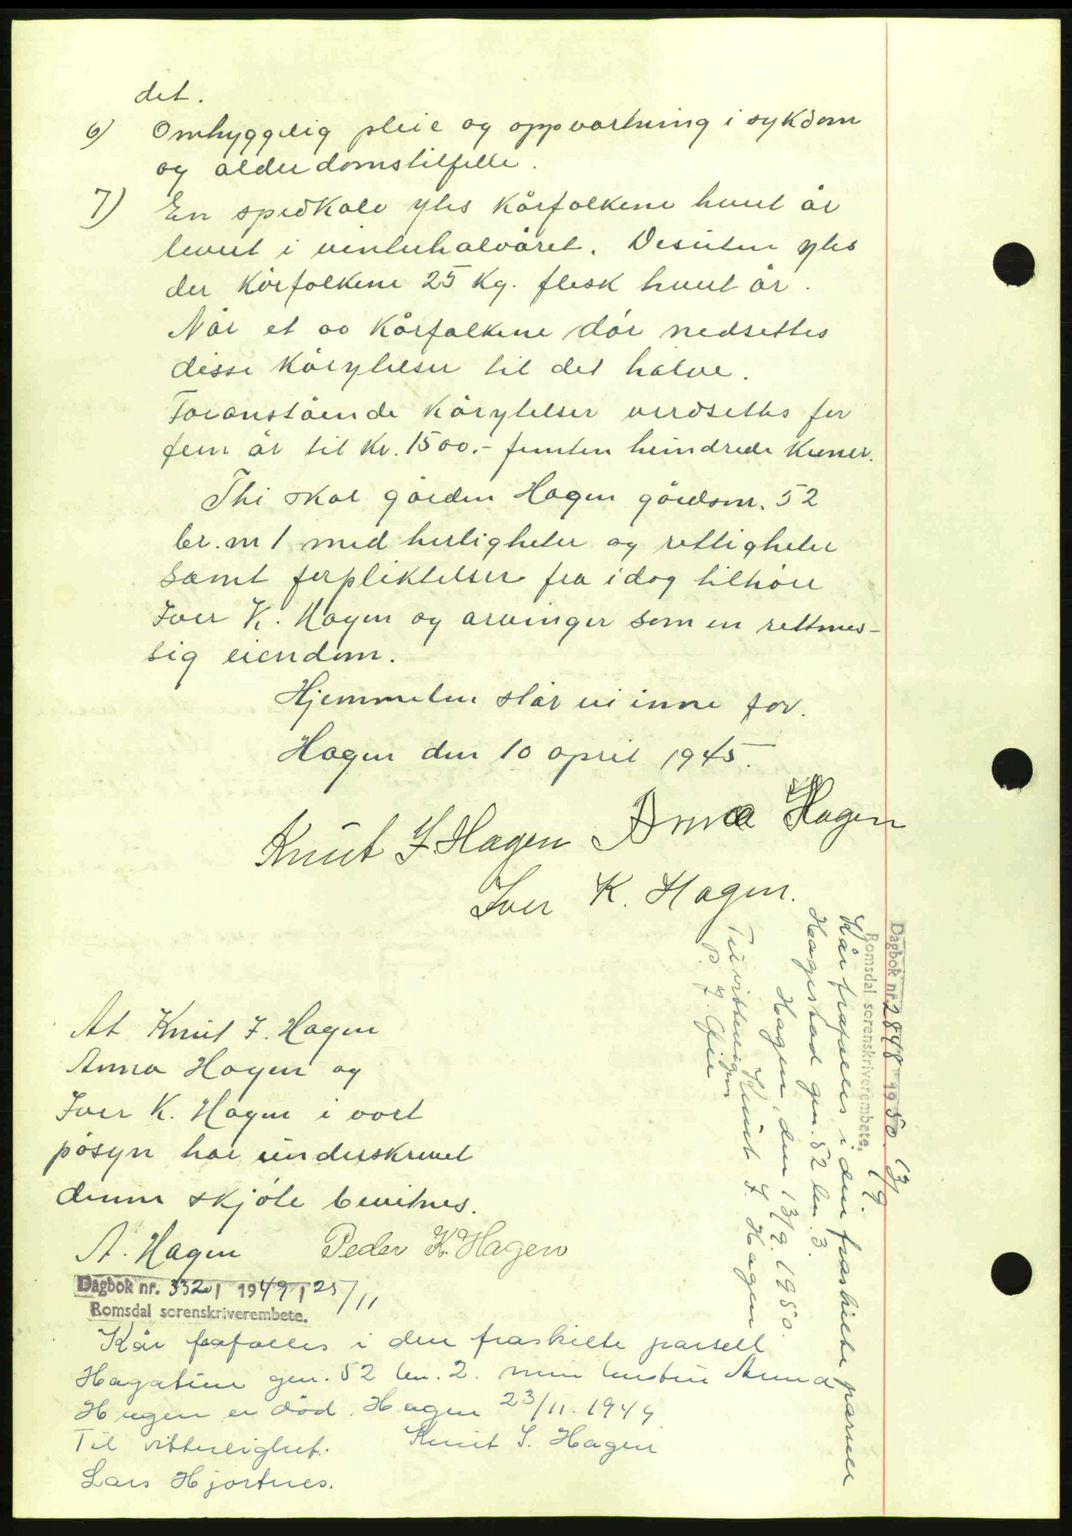 det.
6) Omhyggelig pleie og oppvartning i sykdom
og alderdomstilfelle.
7) En spedkalv ytes kårfolkene hvert år
levert i vinterhalvåret. Desuten ytes
der kårfolkene 25 kg. flesk hvert år.
Når et av kårfolkene dør nedsettes
disse kårytelser til det halve.
Foranstående kårytelser verdsettes for
fem år til kr. 1500.- femten hundrede kroner.
Thi skal gården Hagen gårdsnr. 52
br. nr 1 med herligheter og rettigheter
samt forpliktelser fra idag tilhøre
Iver K. Hagen og arvinger som en rettmes-
sig eiendom.
Hjemmelen står vi inne for.
Hagen den 10 april 1945.
Knut I Hagen Anna Hagen
Iver K. Hagen.
At Knut I. Hagen
Anna Hagen og
Iver K. Hagen i vort
påsyn har underskrevet
denne skjøte bevitnes.
A. Hagen Peder K. Hagen
Dagbok nr. 3320 1949 25/11
Romsdal sorenskriverembete.
Kår frafalles i den fraskilte parsell
gnr. 52 bnr. 2. min hustru Anna
Hagen er død. Hagen 23/11. 1949
Til vitterlighet. Knut I. Hagen
Lars Hjortnes.
Dagbok nr. 2848 1950. 13/9.
Romsdal sorenskriverembete.
Kår frafalles i den fraskilte parsell
Hagestad gnr. 52 bnr. 3.
Hagen, den 13/9. 1950.
Knut I. Hagen
Til vitterlighet
P. J.